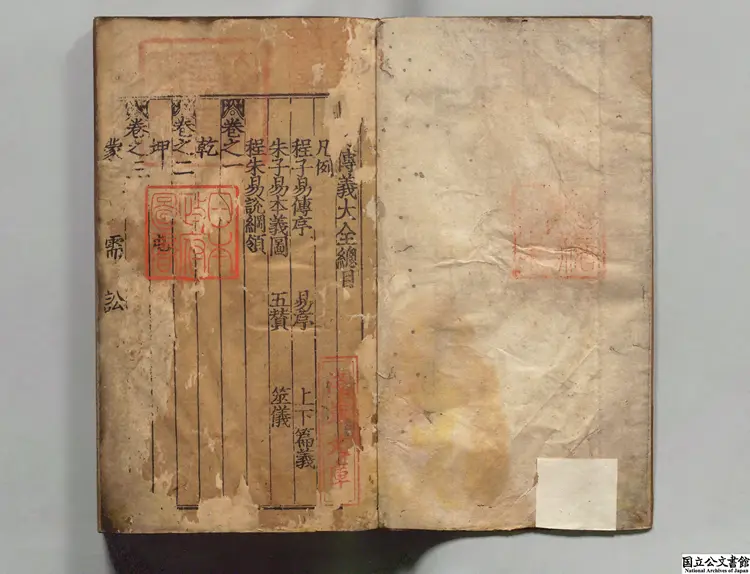 傳義大全總目
凡例
程子易傳序 易序 上下篇義
朱子易本義圖 五贊 筮儀
程朱易說綱領
卷之一
乾
卷之二
坤
卷之三
蒙 需 訟
日本
政府
圖書
国立公文書館
National Archives of Japan